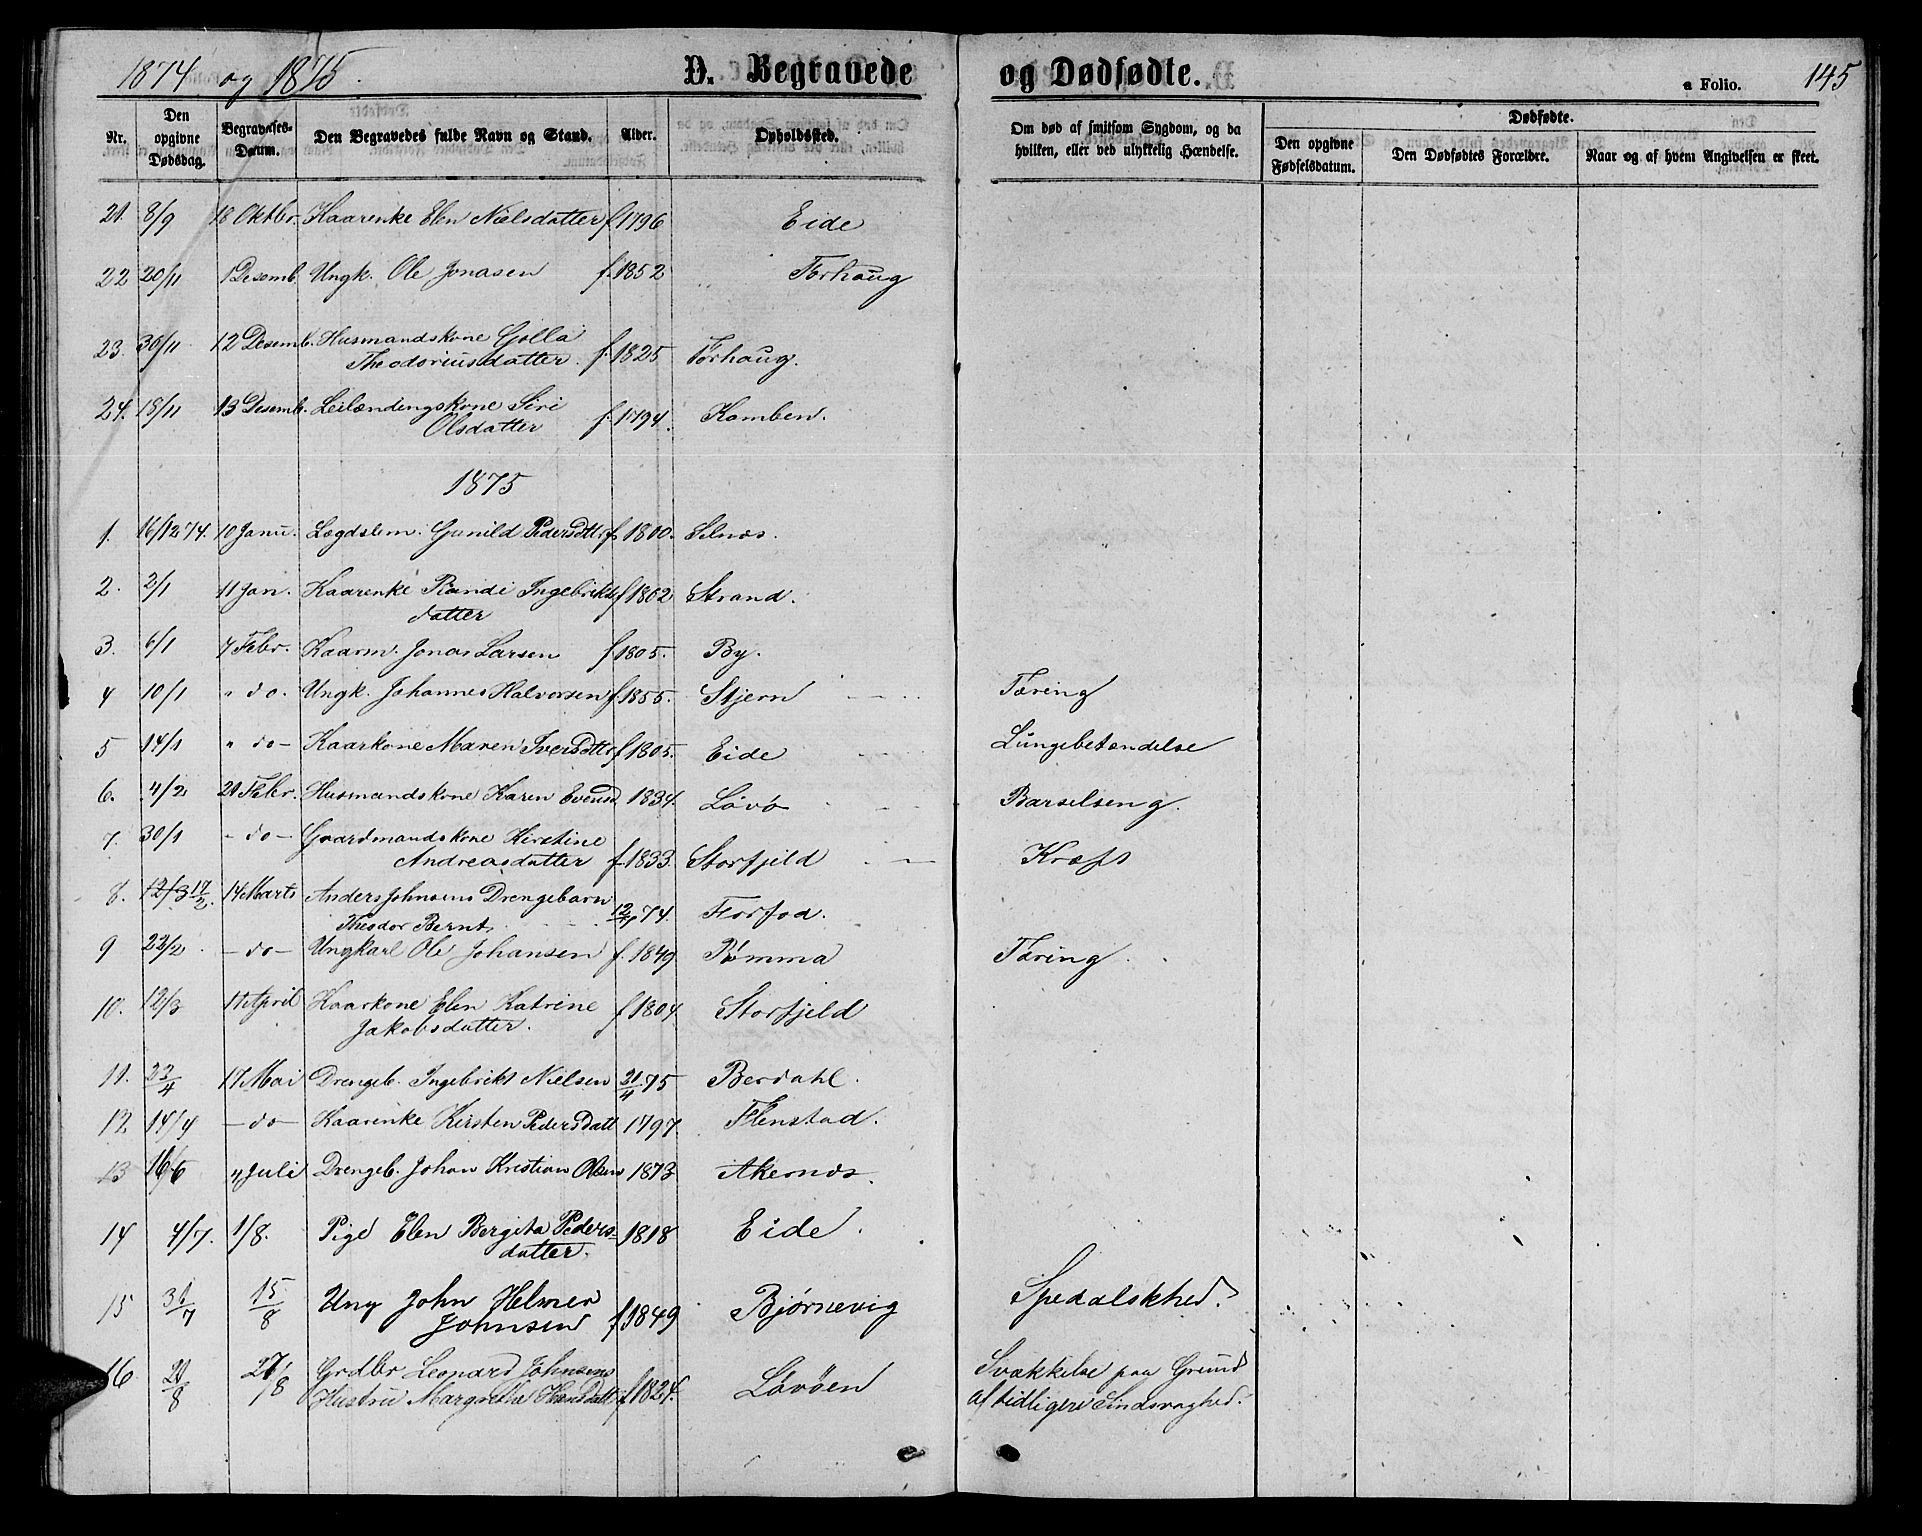 1874 og 1875.
D. Begravede og Dødfødte.
a Folio. 145
Nr.
Den opgivne Dødsdag.
Begravelses-Datum.
Den Begravedes fulde Navn og Stand.
Alder.
Opholdssted.
Om død af smitsom Sygdom, og da hvilken, eller ved ulykkelig Hændelse.
Dødfødte.
Den opgivne Fødselsdatum.
Den Dødfødtes Forældre.
Naar og af hvem Angivelsen er skeet.
21. 8/9 18 Oktbr. Kaarenke Elen Nielsdatter f 1796 Eide
22 20/11 1 Desemb. Ungk. Ole Jonasen f. 1852 Forhaug
23. 30/11 12 Desemb. Husmandskone Golla
Theodoriusdatter. f. 1825 Forhaug.
24. 18/11 13 Desemb. Leilændingskone Siri
Olsdatter f. 1794. Kamben.
1875
1. 16/12 74. 10 Janu. Lægdslem. Gunild Pedersdttr f 1800. Selnæs.
2. 2/1 11 Jan. Kaarenke Randi Ingebrikts
datter f 1802 Strand.
3. 6/1 7 Febr. Kaarm. Jonas Larsen f 1805. By.
4 10/1 " do. Ungk. Johannes Halvorsen f. 1855. Stjern Tæring
5 14/1 " do - Kaarkone Maren Iversdttr f 1805. Eide Lungebetændelse
6. 4/2 21 Febr. Husmandskone Karen Evensd. 1834. Løvø Barselseng.
7. 30/1 - do - Gaardmandskone Kirstine
Andreasdatter f 1833. Storfjeld Kræft
8. 12/3 17/2. 14 Marts Anders Johnsens Drengebarn
Theodor Bernt. 12/1 74. Forfod.
9 22/2. - do - Ungkarl Ole Johansen f. 1849 Rømma Tæring.
10. 12/3 11 April Kaarkone Elen Katrine
Jakobsdatter. f 1804. Storfjeld
11. 23/4 17 Mai Drengeb. Ingebrikt Nielsen 21/4 75 Berdahl.
12 14/4 - do - Kaarenke Kirsten Pedersdatt 1797. Flenstad.
13 16/6 4 Juli Drengeb. Johan Kristian Olsen 1873 Akernæs.
14 4/7. 1/8. Pige Elen Bergita Peders-
datter. 1818 Eide.
15 31/7 15/8 Ung John Helmer
Johnsen f 1849 Bjørnevig Spedalskhed.
16 21/8 27/8 Grdbr Leonard Johnsens
Hustru Margrethe Hansdatt f 1824. Løvøen Svækkelse paa Grund
af tidligere Sindsvaghed.